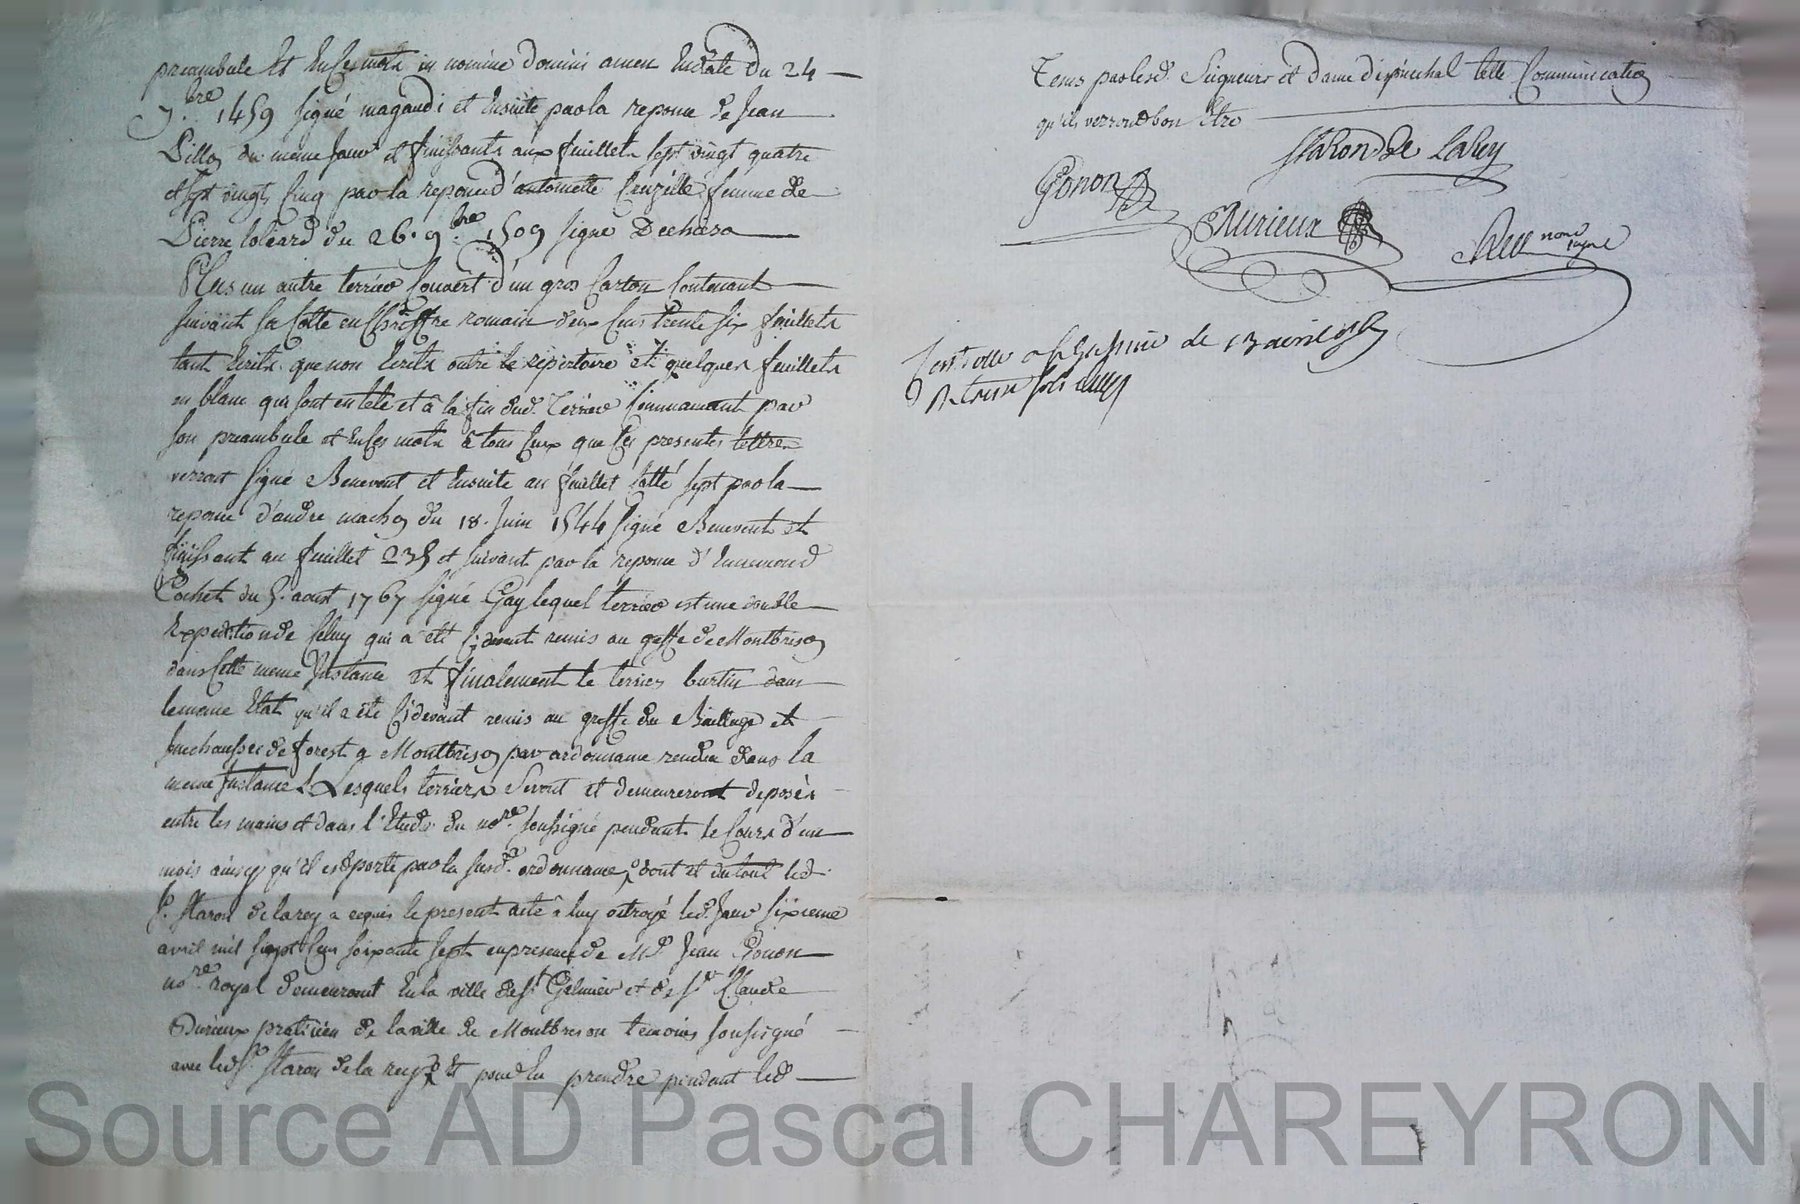 preambule et en ces mots in nomine domini amen en date du 24
7.bre 1459 signé magaudi et ensuite par la reponse de Jean
Pillon du meme jour et finissants aux feuillets sept vingt quatre
et sept vingts cinq par la reponse d'antoinette femme de
Pierre du 26. 9.bre 1509 signé
Plus un autre terrier couvert d'un gros carton contenant
suivant sa cotte en chiffre romain deux cens trente six feuillets
tant ecrits que non ecrits outre le repertoire et quelques feuillets
en blanc qui sont en tete et à la fin dud. Terrier commancant par
son preambule et en ces mots à tous ceux que ces presentes lettres
verront signé Benevent et ensuite au feuillet cotté sept par la
reponse d'andre machon du 18. Juin 1544 signé Benevent et
finissant au feuillet 235 et suivant par la reponse d'Ennemond
Cochet du 5. aout 1767 signé Gay lequel terrier est une double
Expedition de celuy qui a eté cy devant remis au greffe de Montbrison
dans cette meme Instance et finalement le terrier burtin dans
le meme Etat qu'il a eté cy devant remis au greffe du Baillage et
senechaussée de forest a Montbrison par ordonnance rendue dans la
meme Instance Lesquels terriers seront et demeureront deposés
entre les mains et dans l'Etude du no.re soussigné pendant le cours d'un
mois ainsy qu'il est porté par la susd. ordonnance, dont et du tout led.
S. Staron de larey a requis le present acte à luy octroyé led. jour sixieme
avril mil sept cens soixante sept en presence de M.e Jean Gonon
no.re royal demeurant en la ville de St Galmier et de Sr. Claude
Durieux praticien de la ville de Montbrison temoins soussigné
avec led. Sr. Staron de la rey et pour en prendre pendant led.
Tems par lesd. Seigneur et dame d'epinchal telle Communication
qu'ils verront bon etre
Staron De LaRey
Gonon
Durieux
no.re royal
Controllé a St Galmier le 13 avril
R. treize sols
Source AD Pascal CHAREYRON